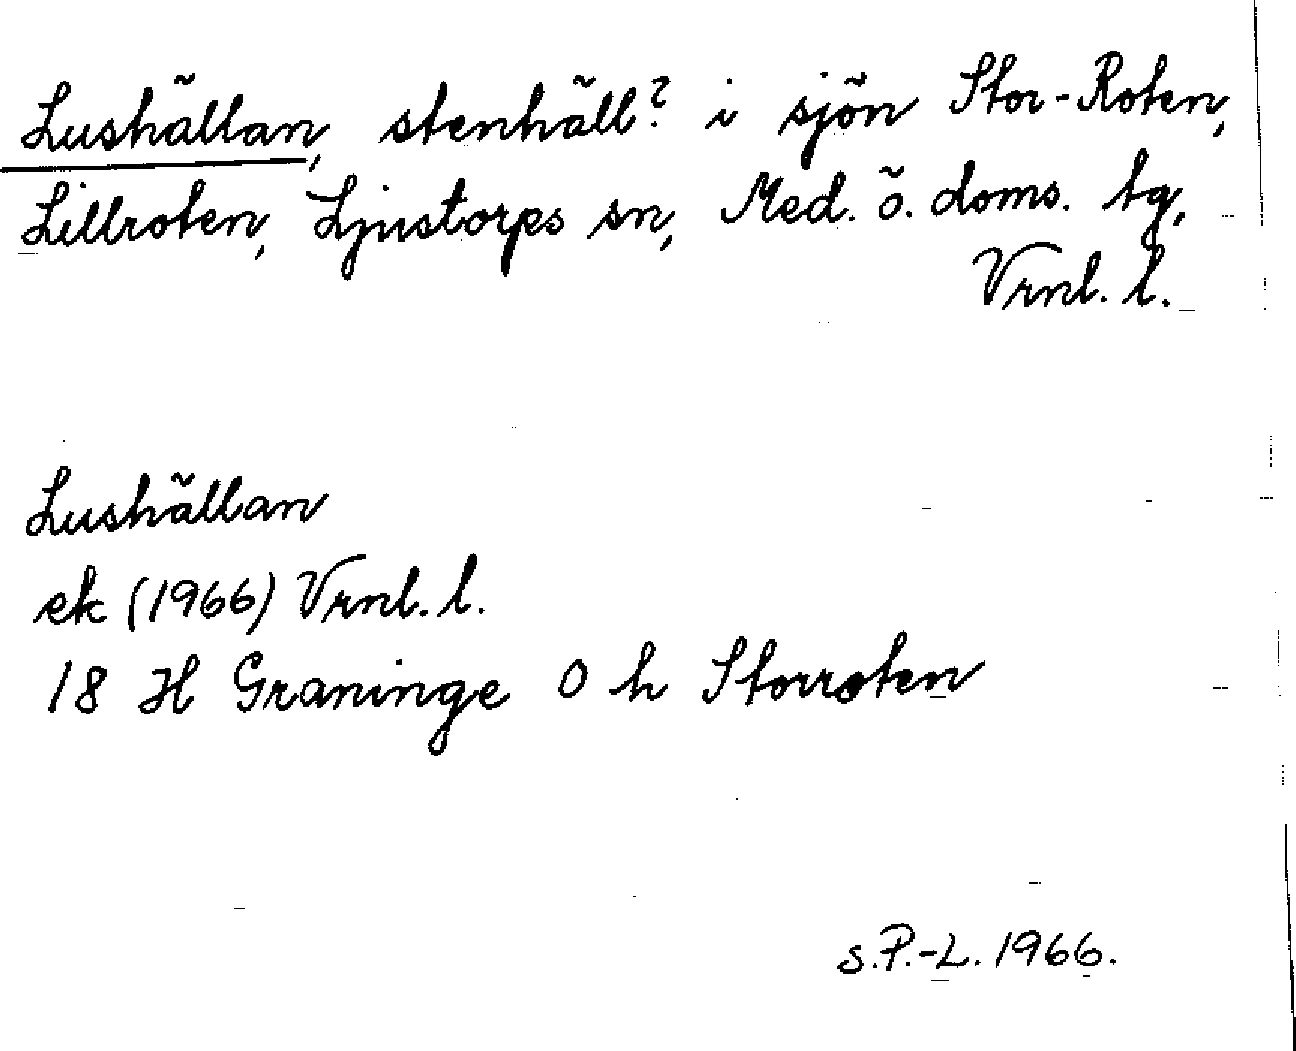 Lushällan, stenhäll? i sjön Stor-Roten,
Lillroten, Ljustorps sn, Med. ö. doms. tg,
Vrnl. l.
Lushällan
ek (1966) Vrnl. l.
18 H Graninge O h Storroten
S.P.-L. 1966.